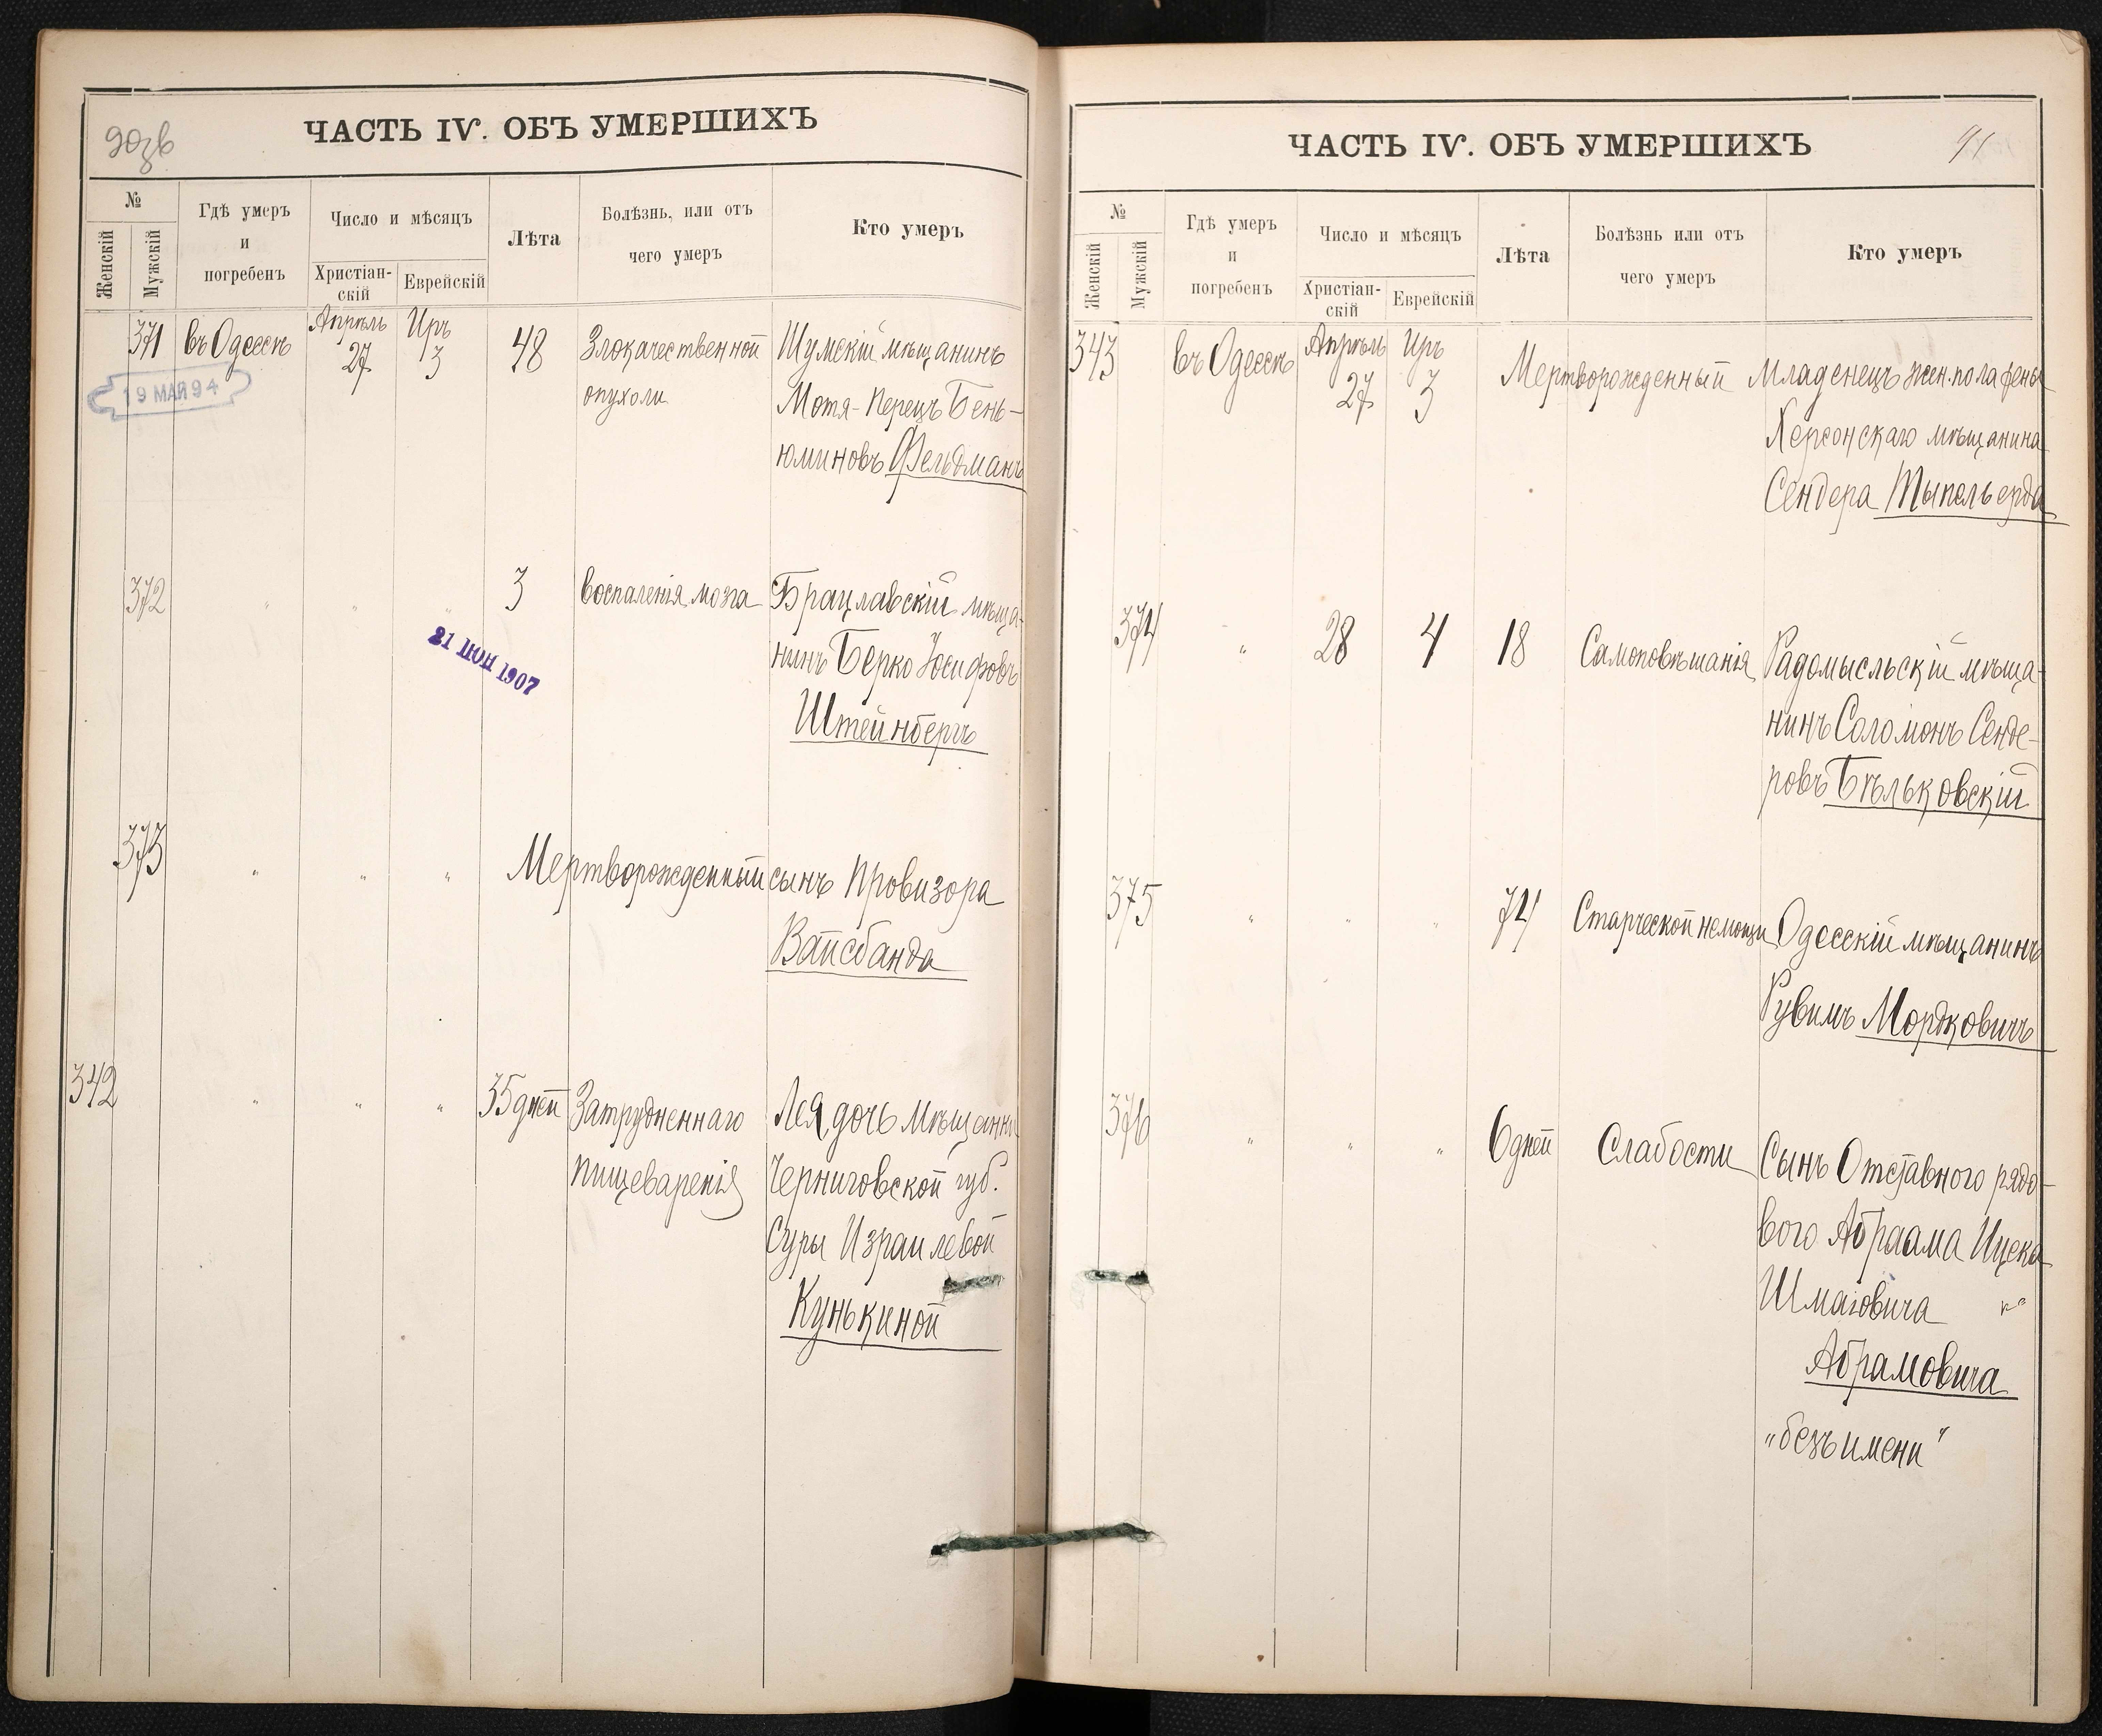 90зв
ЧАСТЬ IV. ОБЪ УМЕРШИХЪ
№
Женскій
Мужскій
Гдѣ умеръ
и
погребенъ
Число и мѣсяцъ
Христіан-
скій
Еврейскій
Лѣта
Болѣзнь, или отъ
чего умеръ
Кто умеръ
371 въ Одессѣ Апрѣль 27 Иръ 3 48 Злокачественной Шумскій мѣщанинъ
опухоли Мотя-Перецъ Бень-
юминовъ Фельдманъ
19 МАЯ 94
372 " " " 3 воспаленія мозга Брацлавскій мѣща-
нинъ Берко Іосифовъ
Штейнбергъ
21 ІЮН 1907
373 " " " Мертворожденный сынъ провизора
Вайсбанда
342 " " " 35 дней Затрудненнаго Лея дочь мѣщанки
пищеваренія Черниговской губ.
Суры Израилевой
Кунькиной
ЧАСТЬ IV. ОБЪ УМЕРШИХЪ
91
№
Женскій
Мужскій
Гдѣ умеръ
и
погребенъ
Число и мѣсяцъ
Христіан-
скій
Еврейскій
Лѣта
Болѣзнь или отъ
чего умеръ
Кто умеръ
343 въ Одессѣ Апрѣль 27 Иръ 3 Мертворожденный Младенецъ жен. пола
Херсонскаго мѣщанина
Сендера
374 " 28 4 18 Самоповѣшанія Радомысльскій мѣща-
нинъ Соломонъ Сенде-
ровъ Бѣльковскій
375 " " " 74 Старческой немощи Одесскій мѣщанинъ
Рувимъ Мордковичъ
376 " " " 6 дней Слабости Сынъ Отставного рядо-
вого Абраама Ицека
Шмаіовича
Абрамовича
"безъ имени"